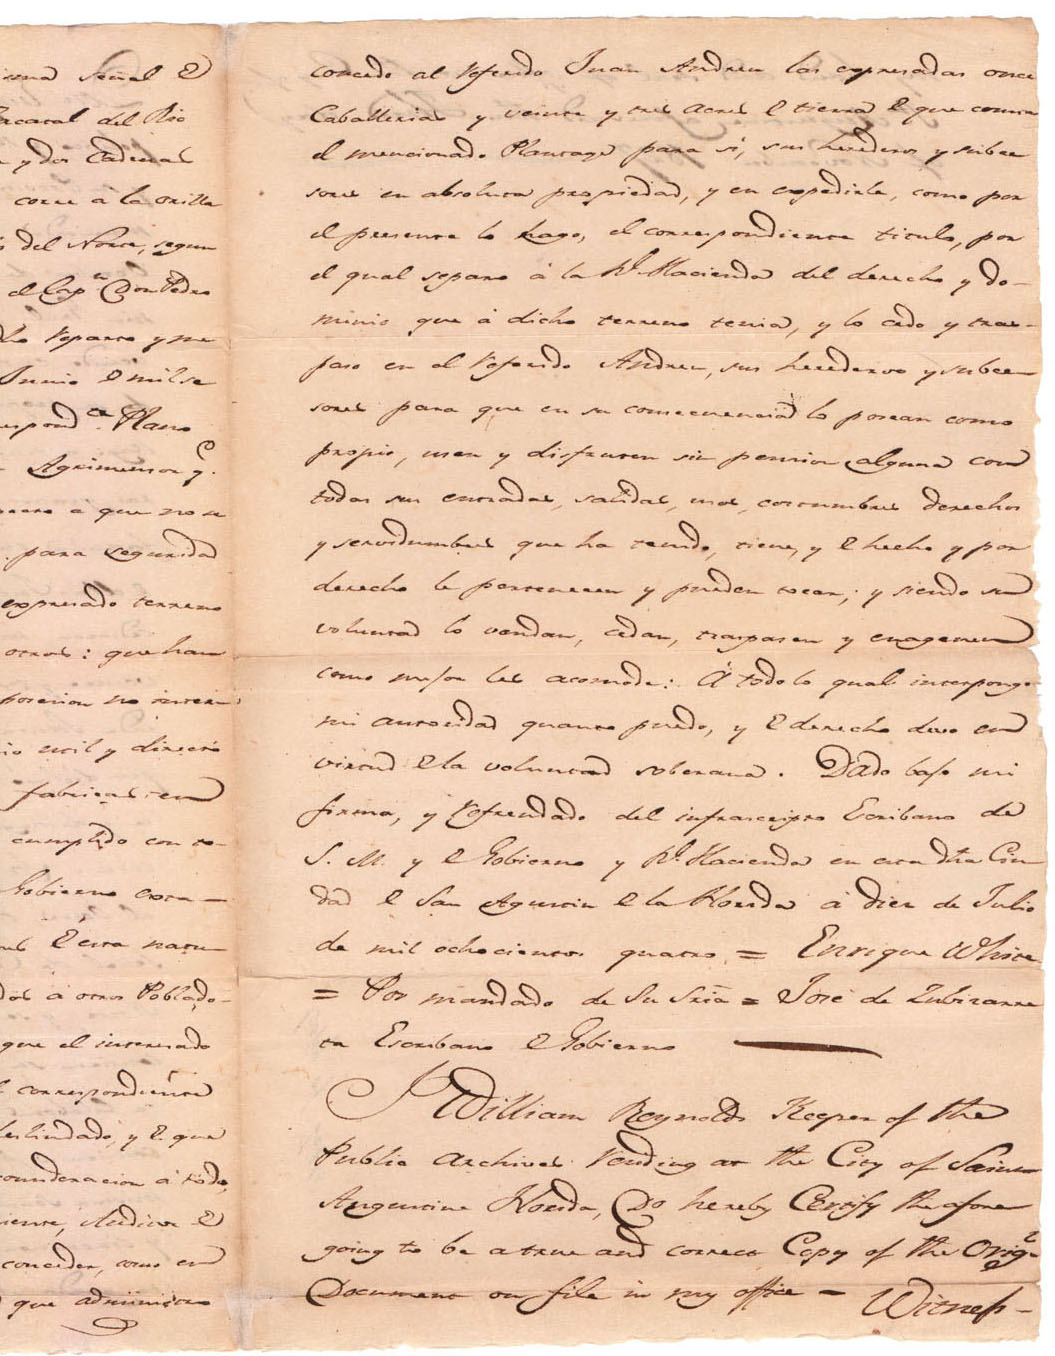 isma señal D
Pacaral del Rio
y dos Cadenas
corre á la orilla
del Norte, segun
el Capn Don Pedro
dho reparto y me
Junio D mil se
espondte Plano
Agrimensor q.
á que no se
para seguridad
expresado terreno
otros: que han
posesion no interu
io util y directo
fabricas, en
cumplido con to-
Gobierno exta-
D esta natu-
dos á otros Poblado-
que el interesado
correspondiente
deslindado, y D que
consideracion á todo,
conceder, como en
que administro
concedo al referido Juan Andreu las expresadas once
Caballerias y veinte y tres acres D tierra D que consta
el mencionado Plantage para si, sus herederos y subce
sores en absoluta propriedad, y en expedirle, como por
el presente lo hago, el correspondiente titulo, por
el qual separo á la Rl. Hacienda del derecho y do-
minio que á dicho terreno tenia, y lo cedo y tras-
paso en el referido Andreu, sus herederos y subce
sores para que en su consecuencia lo posean como
propio, usen y disfruten sin pension alguna con
todas sus entradas, salidas, usos, costumbres derechos
y servidumbres que ha tenido, tiene, y D hecho y por
derecho le pertenecen y pueden tocar; y siendo su
voluntad lo vendan, cedan, traspasen y enagenen
como mejor les acomode: Á todo lo qual interpongo
mi autoridad quanto puedo, y D derecho devo en
virtud D la voluntad soberana. Dado bajo mi
firma, y refrendado del infrascripto Escribano de
S. M. y D Gobierno y Rl. Hacienda en esta dha Ciu
dad D San Agustin D la Florida á diez de Julio
de mil ochocientos quatro = Enrique White
= Por mandado de Su Sria = José de Zubizarre
ta Escribano D Gobierno
I William Reynolds Keeper of the
Public Archives Residing at the City of Saint
Augustine Florida, Do hereby Certify the afore
going to be a true and correct Copy of the Origl
Document on file in my office - Witness -